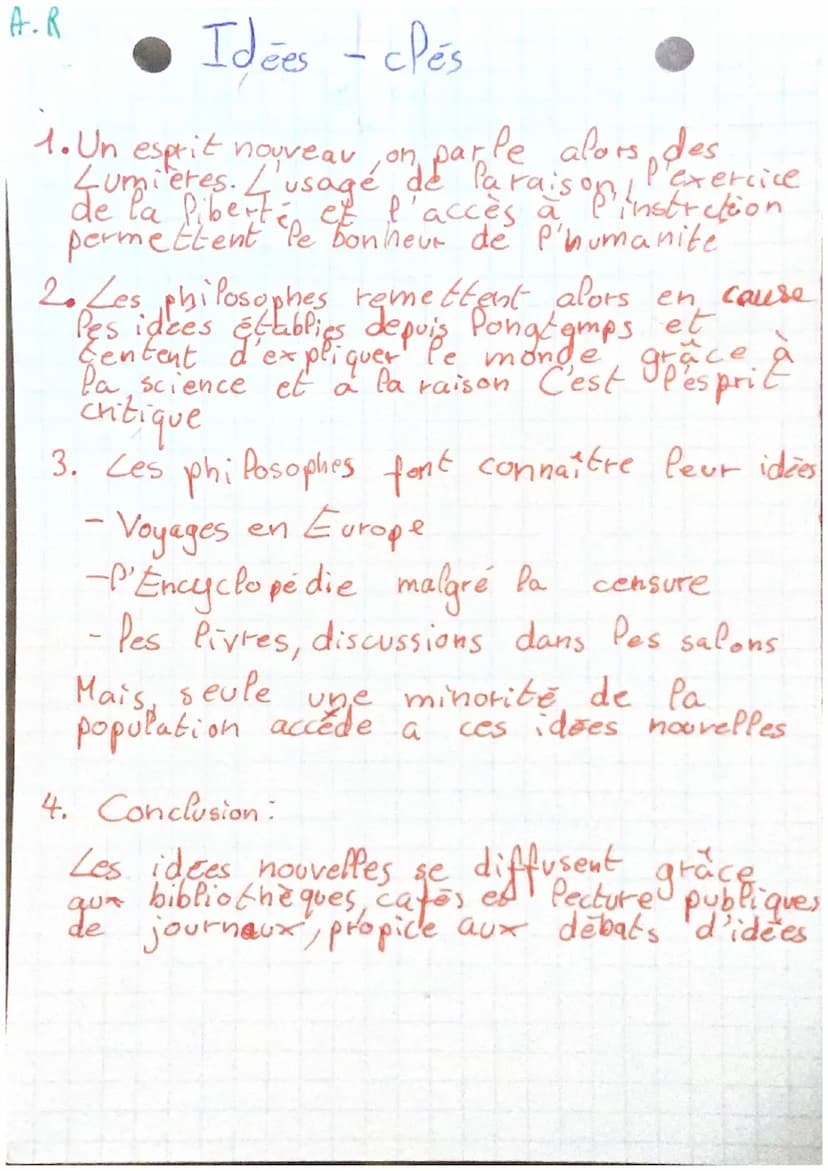 A.R
Idées - clés
1. Un esprit nouveau, on parle alors des
Lumières. L'usage de la raison, l'exercice
de la liberté et l'accès à l'instrction
permettent le bonheur de l'humanité
2. Les philosophes remettent alors en cause
les idées établies depuis longtemps et
tentent d'expliquer le monde grâce à
la science et à la raison C'est l'esprit
critique
3. Les philosophes font connaître leur idées
- Voyages en Europe
- l'Encyclopédie malgré la censure
- les livres, discussions dans les salons
Mais, seule une minorité de la
population accède a ces idées nouvelles
4. Conclusion :
Les idées nouvelles se diffusent grâce
aux bibliothèques, cafés et lecture publiques
de journaux, propice aux débats d'idées